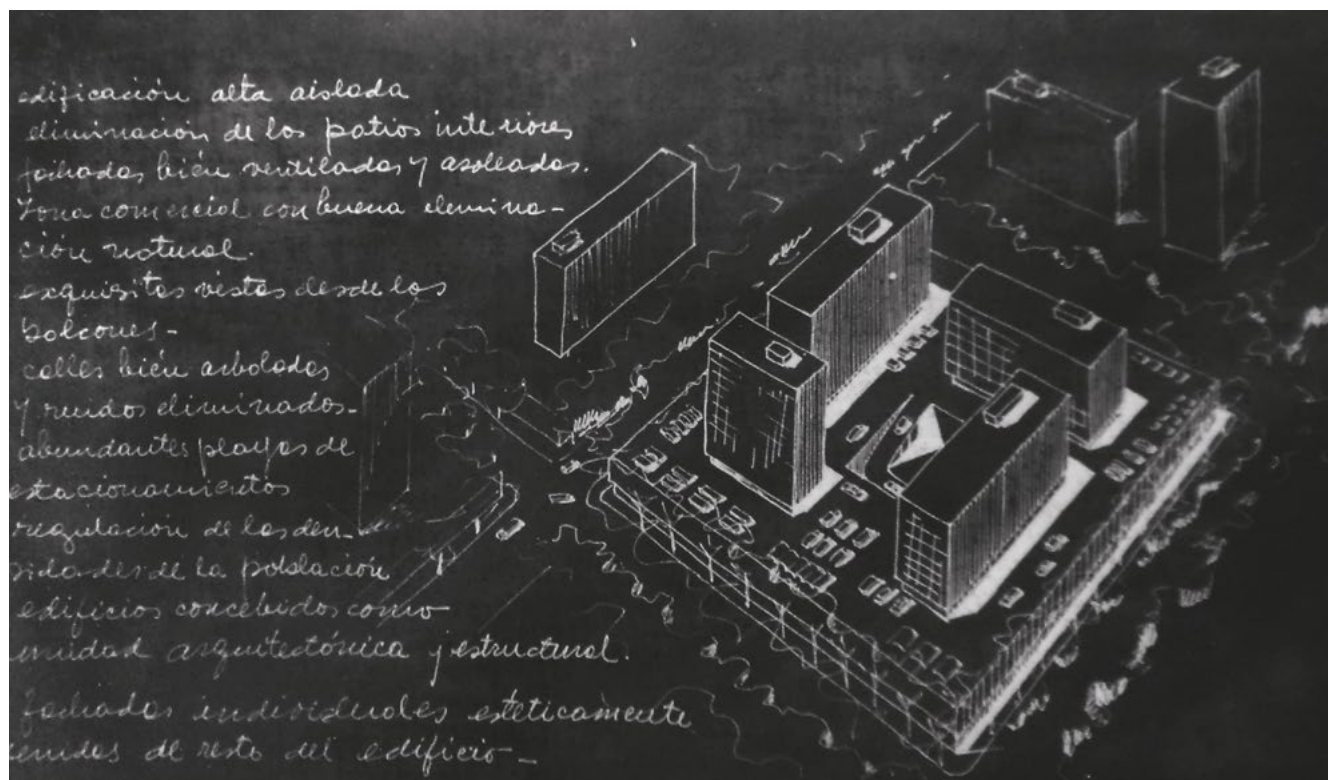 edificación alta aislada
eliminación de los patios interiores
fachadas bién ventiladas y asoleadas.
zona comercial con buena elemina-
ción natural.
exquisitas vistas desde los
balcones-
calles bién arboladas
y ruidos eliminados-
abundantes playas de
estacionamientos
regulación de las den-
sidades de la población
edificios concebidos como
unidad arquitectónica y estructural.
fachadas individuales estéticamente
unidas de resto del edificio-